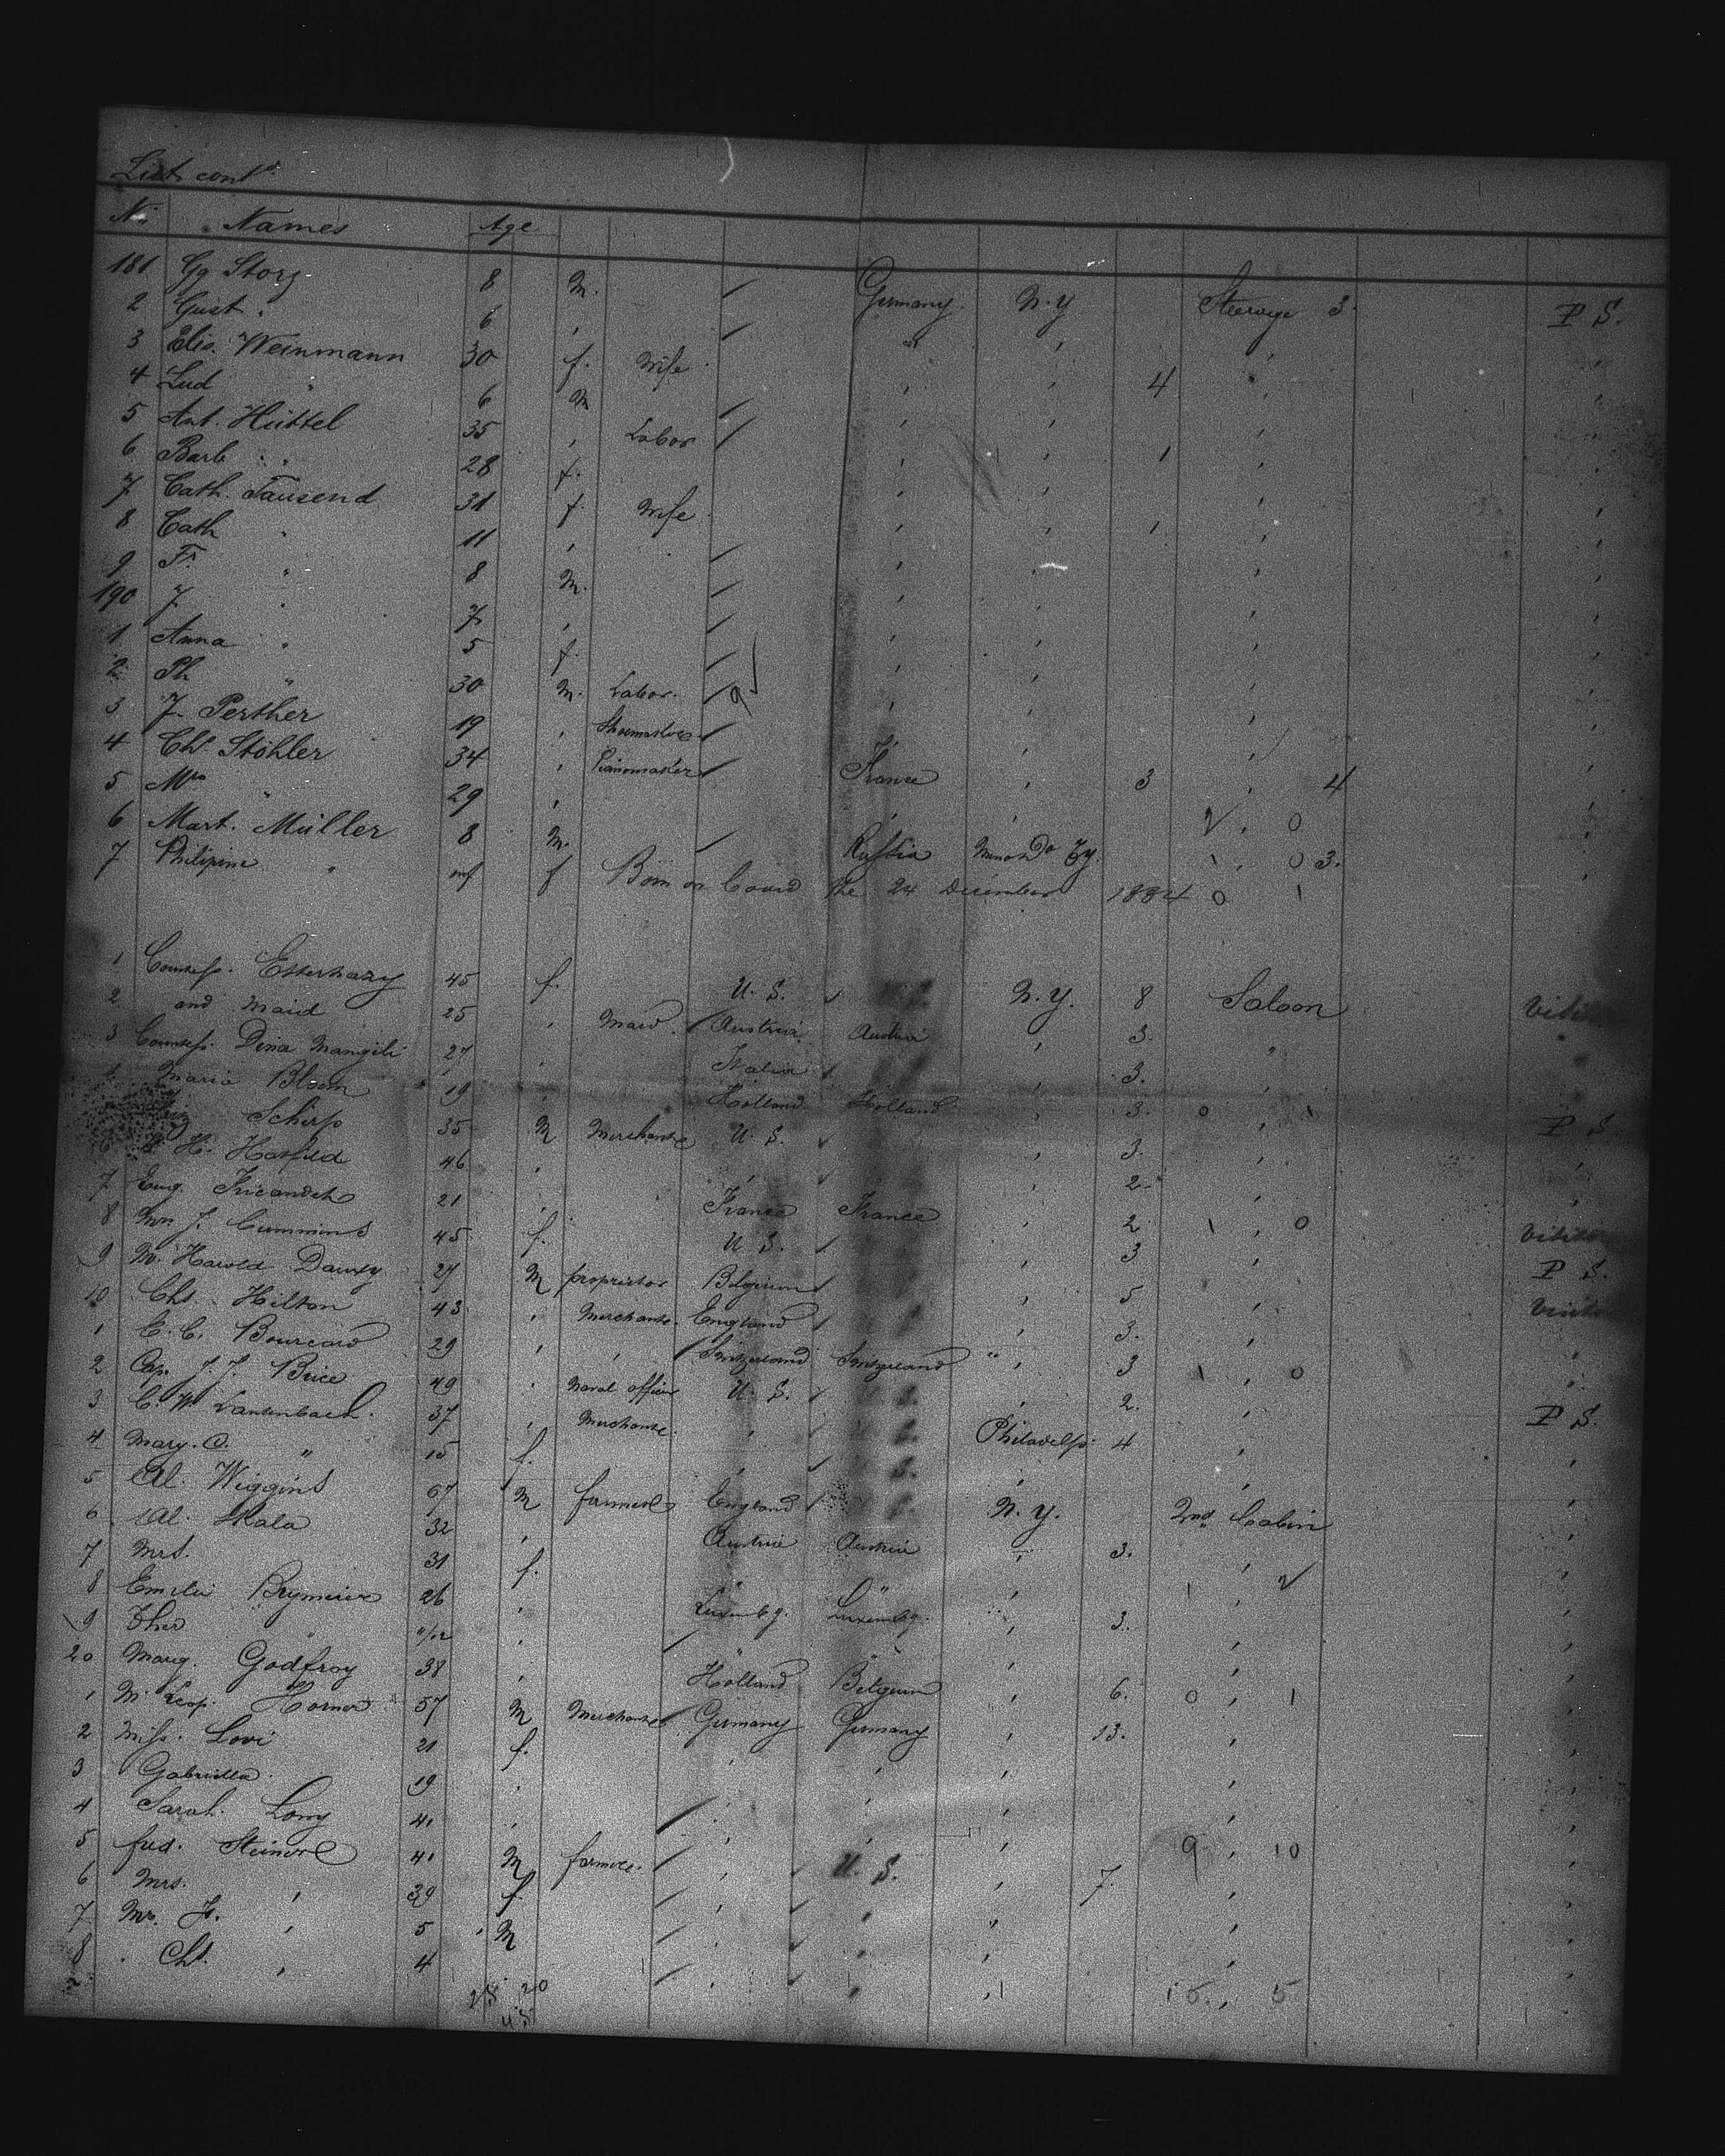 List cont^d
No. Names Age
181 Gg Storz 8 M. / Germany. N.Y Steerage 3. P S.
2 Gust. " 6 , / " , ,
3 Elis. Weinmann 30 f. Wife , , 4 , ,
4 Lud " 6 M / , , , ,
5 Ant. Hüttel 35 , Labor / , , 1 , ,
6 Barb " 28 f. , , , ,
7 Cath. Tausend 31 f. Wife , , 1 , ,
8 Cath " 11 , / , , , ,
9 Fr. " 8 M. / , , , ,
190 J. " 7 , / , , , ,
1 Anna " 5 f. / , , , ,
2 Ph " 30 M. Labor. / , , , ,
3 J. Perther 19 , Shoemaker / , , , ,
4 Chs. Stöhler 34 , Pianomaker / France , 3 , 4 ,
5 Mrs " 29 , , , , 0 ,
6 Mart. Müller 8 M. / Russia 0 3. ,
7 Philipine " inf f Born on board the 24 December 1884 0 1
1 Countess. Esterhazy 45 f. U. S. U. S. N. Y. 8 Saloon
2 and maid 25 , Maid. Austria Austria , 3. "
3 Countess. Dina Mangili 27 , Italia , 3. ,
4 Maria Bloem 19 , Holland Holland , 3. 0 , 1
Schirp 35 M Merchant U. S. , 3. , P S.
H. Hasfeld 46 , , , 2 , ,
7 Eug. Fricandet 21 , France France , 2 1 , 0
8 Mrs J. Cummins 45 f. U. S. , 3 ,
9 M. Harold Dauxy 27 M proprietor Belgium , 5 , P S.
10 Chs. Hilton 43 , Merchant. England , 3. ,
1 E. C. Bourcard 29 , , Switzerland Switzerland " , 3 1 , 0 ,
2 Cap. J. J. Brice 49 , Naval officer U. S. S. , 2. ,
3 C. W. Lautenbach. 37 , Merchant. , S. Philadelp. 4 , P S.
4 Mary. C. " 15 f. , S. , , ,
5 Al. Wiggins 67 M farmer England S. N. Y. 2nd Cabin ,
6 Al. Skala 32 , Austria Austria , 3. , ,
7 Mrs. 31 f. " " , , ,
8 Emilie Brymeier 26 , Luxembg. Luxembg. , 3. ,
9 Ther " 11/12 , / " " , , ,
20 Marg. Godfroy 38 , Holland Belgium , 6. 0 , 1 ,
1 M. Leop. Horner 57 M Merchant / Germany Germany , 13. , ,
2 Miss. Lovi 21 f. , , , , ,
3 Gabriella. 19 , , , , , ,
4 Sarah. Lony 41 , / , , , 9 , 10 ,
5 Fred. Steiner 41 M farmer. / , U. S. , 7. , ,
6 Mrs. , 39 f. / , , " , ,
7 Mr. Fr. , 5 M / , , , , ,
8 Chs. , 4 / , , , , 5